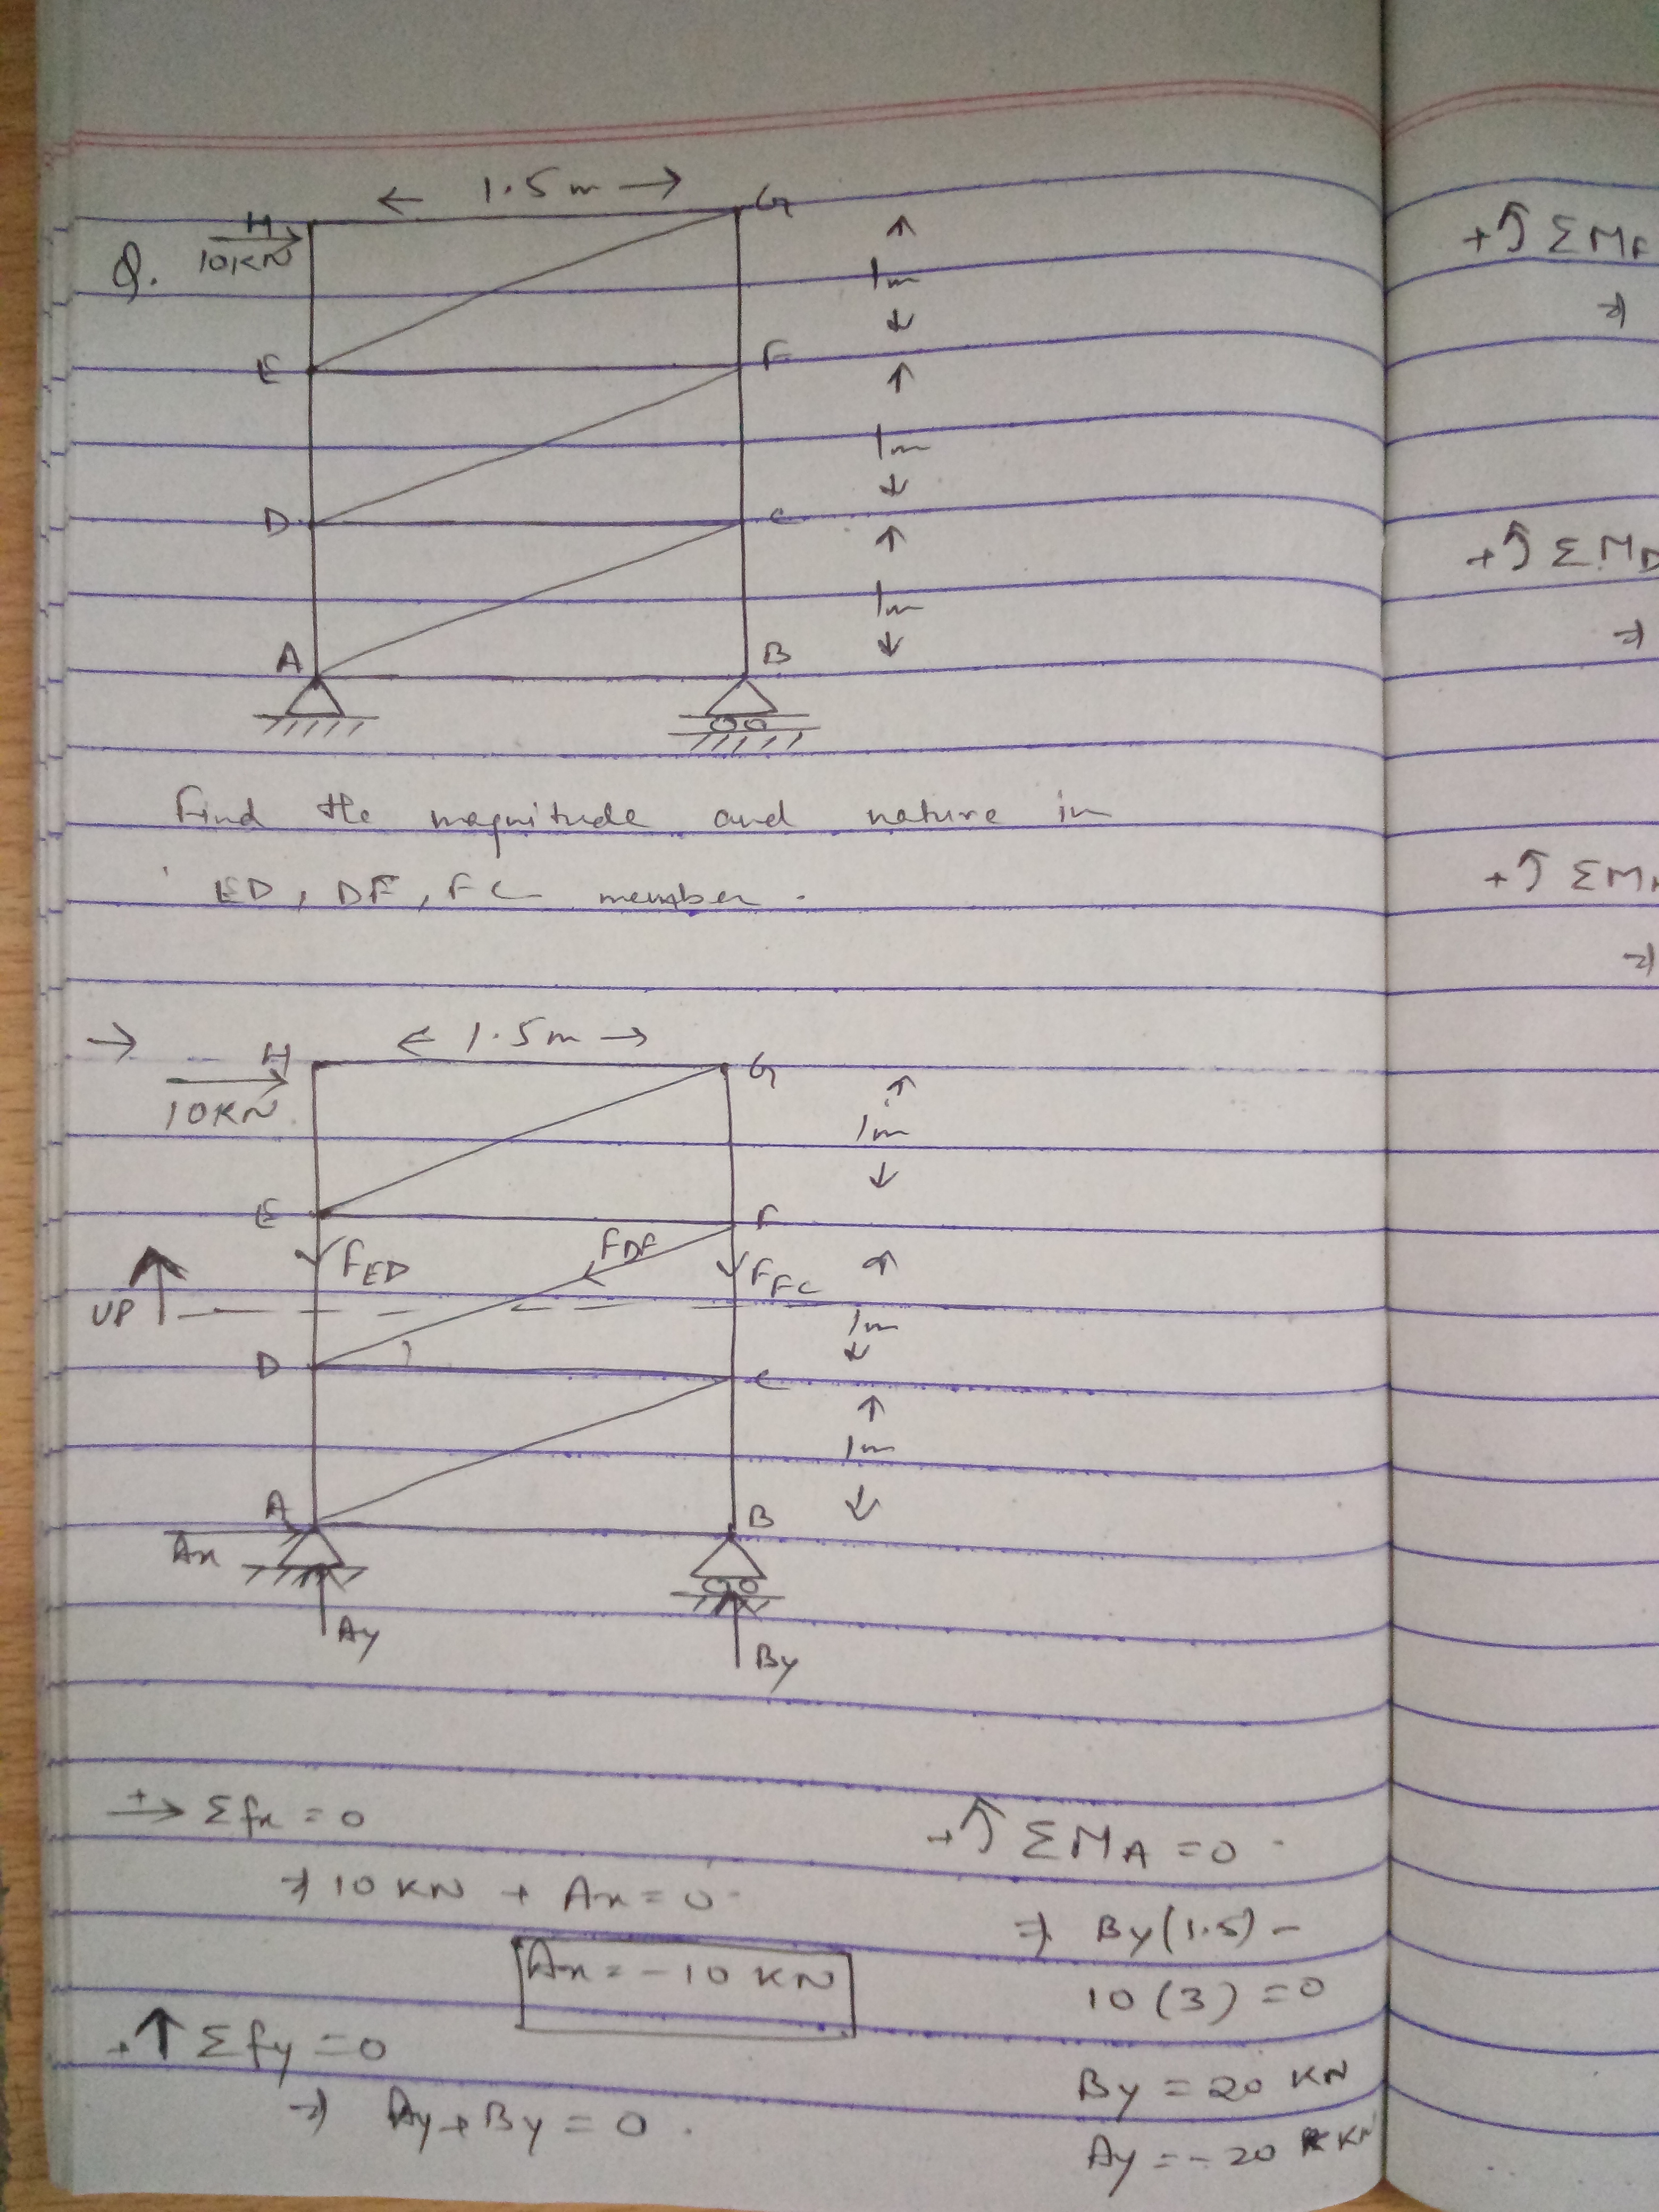 ← 1.5m →
H G
Q. 10KN
↑
1m
↓
E F
↑
1m
↓
D C
↑
1m
↓
A B
Find the magnitude and nature in
ED, DF, FC member.
→ H ← 1.5m → G
10KN
↑
1m
↓
E F
F_ED F_DF F_FC
↑
UP
1m
↓
D C
↑
1m
↓
A B
Ax
Ay By
+→ Σfx = 0
⇒ 10 KN + Ax = 0
Ax = -10 KN
+↑ Σfy = 0
⇒ Ay + By = 0.
+↺ ΣM_A = 0
⇒ By(1.5) -
10(3) = 0
By = 20 KN
Ay = -20 KN
+↺ ΣM
⇒
+↺ ΣM_D
⇒
+↺ ΣM
⇒